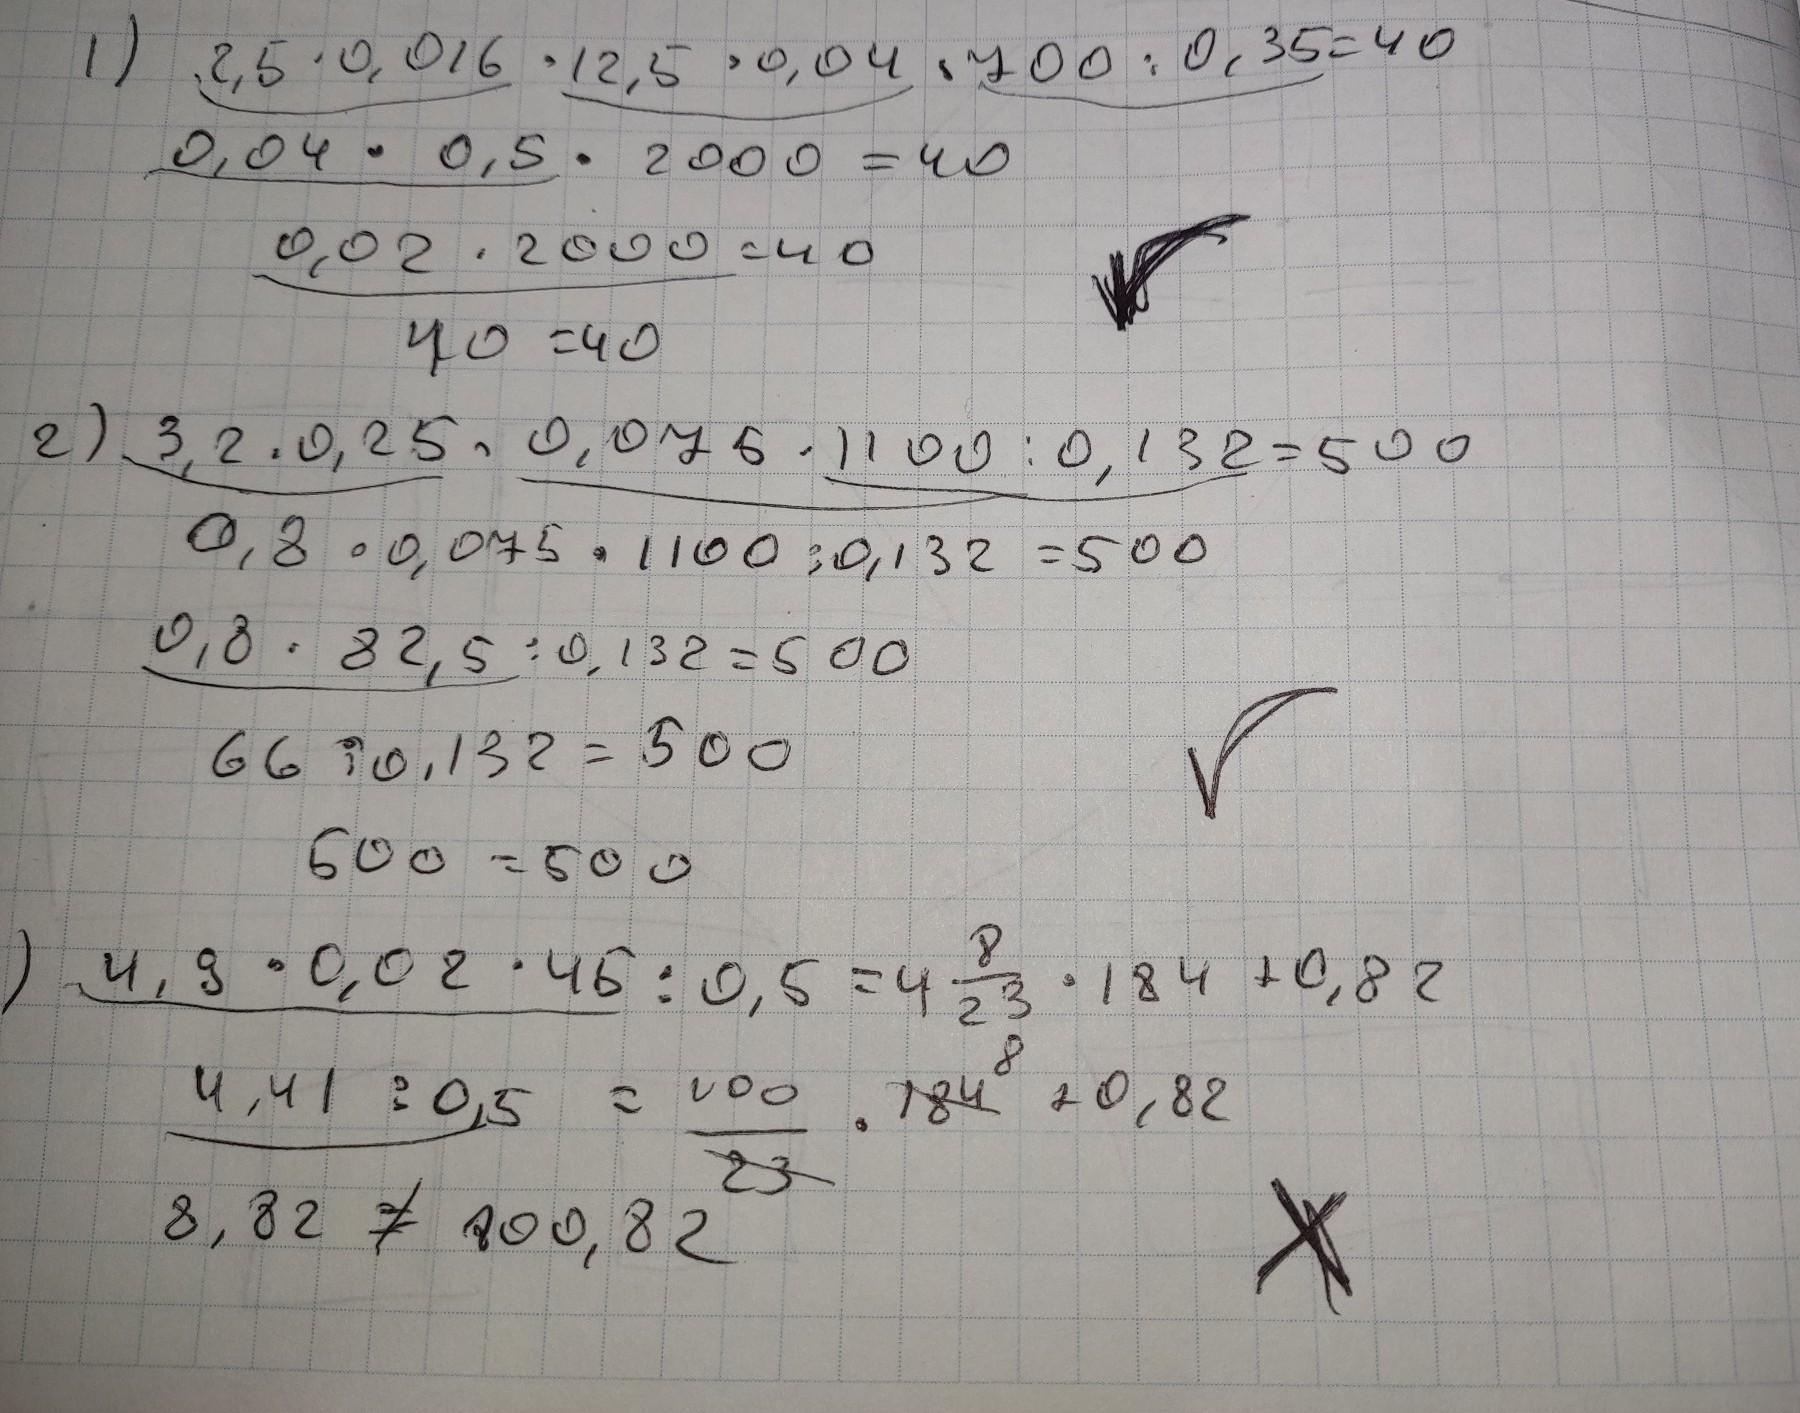 1) 2,5 · 0,016 · 12,5 · 0,04 · 700 : 0,35 = 40
0,04 · 0,5 · 2000 = 40
0,02 · 2000 = 40
40 = 40
2) 3,2 · 0,25 · 0,075 · 1100 : 0,132 = 500
0,8 · 0,075 · 1100 : 0,132 = 500
0,8 · 82,5 : 0,132 = 500
66 : 0,132 = 500
500 = 500
) 4,9 · 0,02 · 45 : 0,5 = 4 8/23 · 184 + 0,82
4,41 : 0,5 = 100/23 · 184 8 + 0,82
8,82 ≠ 800,82